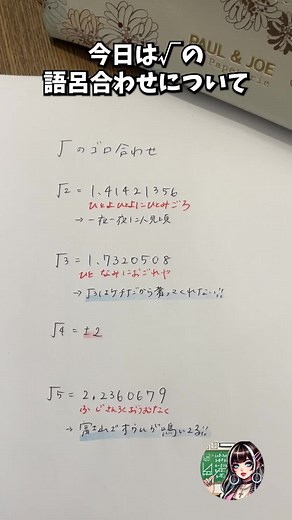 PAUL & JOE
今日は√の
語呂合わせについて
√のゴロ合わせ
√2 = 1.41421356
ひとよひとよにひとみごろ
→ 一夜一夜に人見頃
√3 = 1.7320508
ひと なみにおごれや
→ √3はケチだから奢ってくれない!!
√4 = ±2
√5 = 2.2360679
ふじさんろくおうむなく